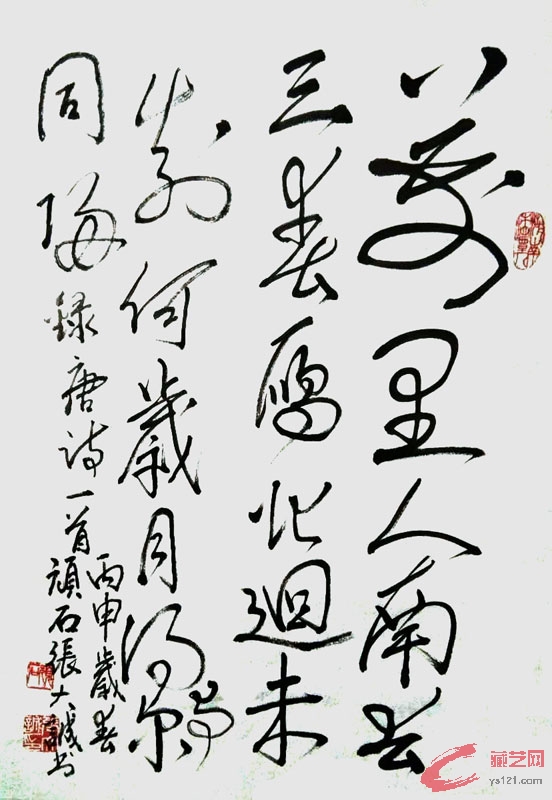 萬里人南去
三春雁北迴未
何歲月得與尔
同歸錄唐詩一首
丙申歲春
頑石張大誠书
藏艺网
ys121.com